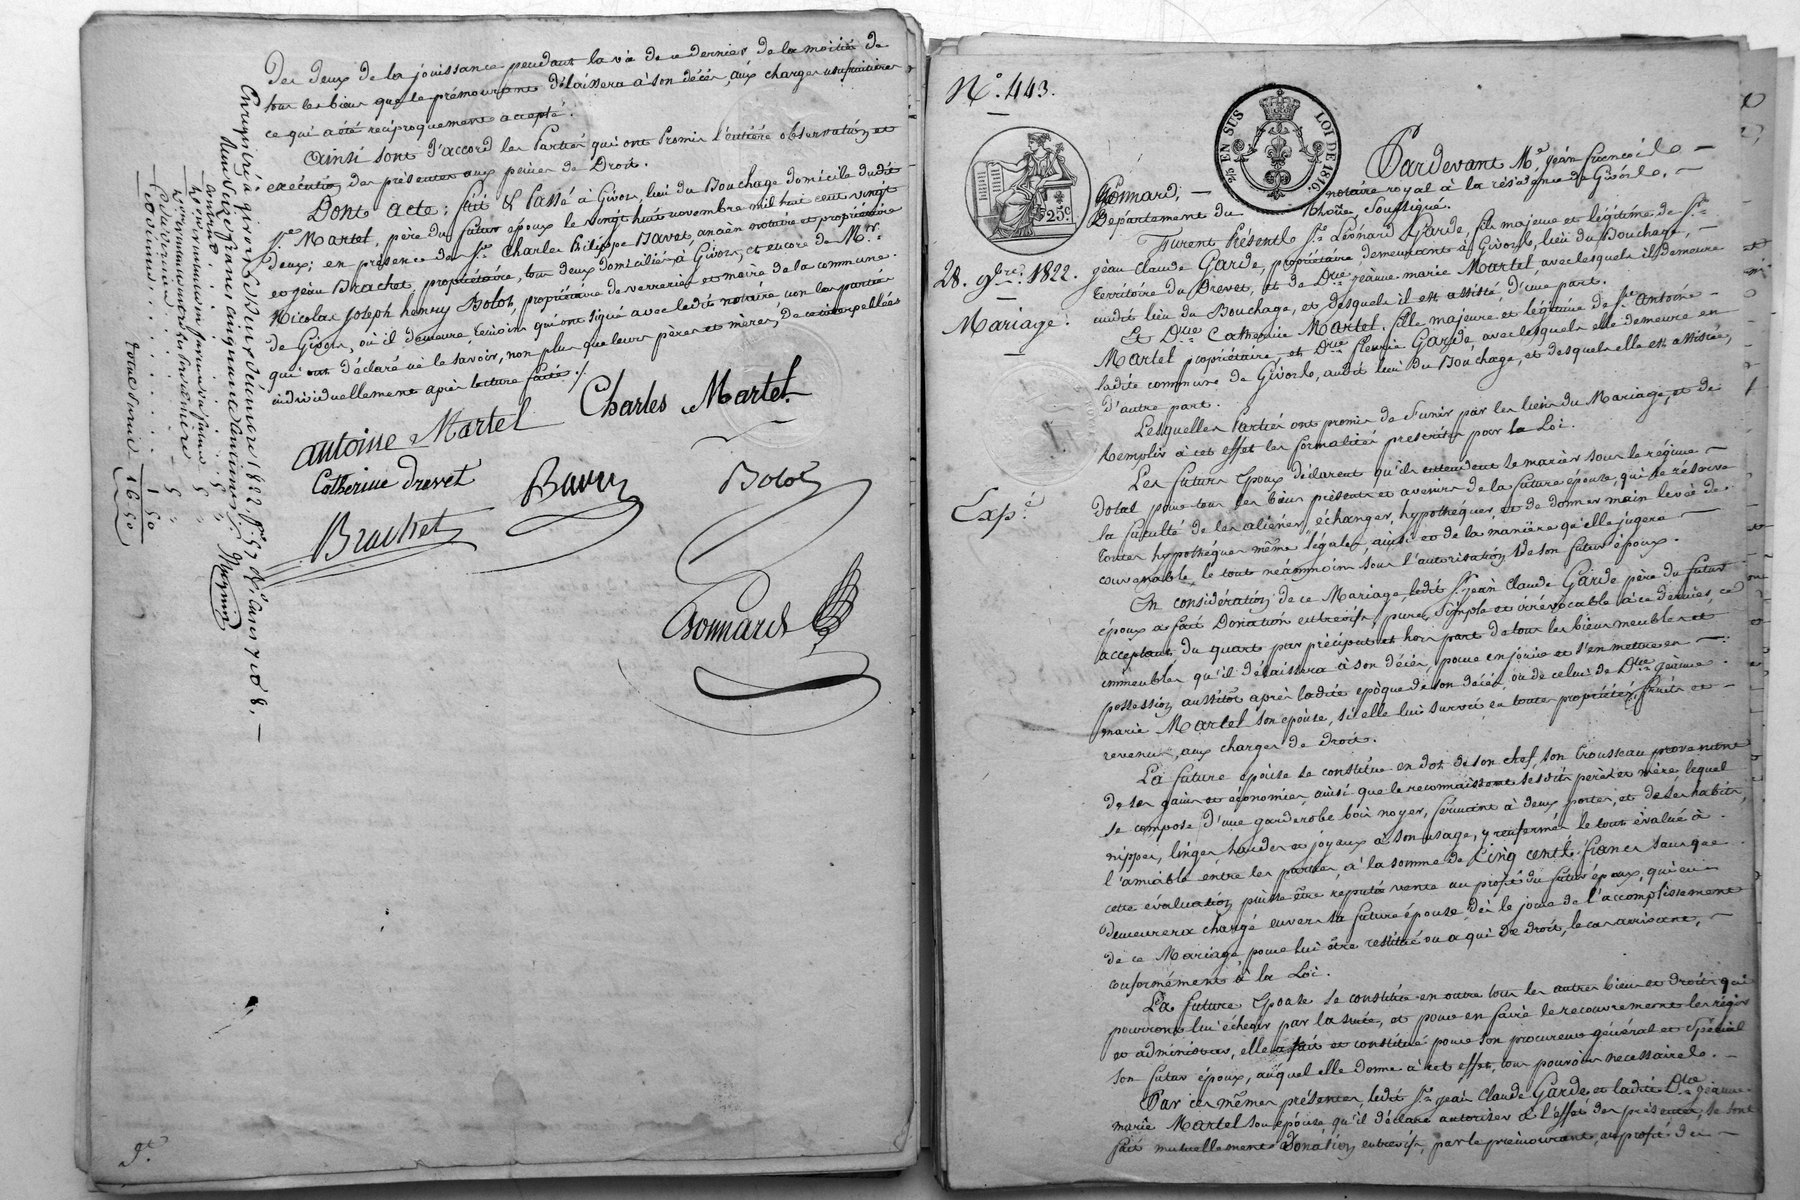 Des deux de la jouissance pendant la vie de ce dernier de la moitié de
tous les biens que le prémourant délaissera à son décès, aux charges usufruitières
ce qui a été réciproquement accepté.
Ainsi sont d'accord les Parties qui ont Promis l'entière observation et
exécution des présentes aux peines de Droit.
Dont acte; fait & Passé à Givors, lieu du Bouchage domicile dudit
Sr. Martel, père du futur époux le vingt huit novembre mil huit cent vingt
deux; en présence de Sr. Charles Philippe Bavet, ancien notaire et propriétaire
et jean Brachet, propriétaire, tous deux domiciliés à Givors, et encore de Mr.
Nicolas Joseph henry Bolot, propriétaire de verreries et maire de la commune
de Givors, où il demeure, témoins qui ont signé avec ledit notaire, non les parties
qui ont déclaré ne le savoir, non plus que leurs pères et mères, de ce interpellés
individuellement après lecture faite./.
antoine Martel
Charles Martel
Catherine drevet
Bolot
Brachet
Bonnard
Enregistré à givors le deux décembre 1822, fo. 57
Reçu
tout
1 50
16 50
No. 443.
25 EN SUS
LOI DE 1816
25c
Pardevant Me. jean françois
Bonnard, notaire royal à la résidence de Givors,
Département du Rhône, soussigné.
28. 9bre. 1822.
Mariage.
Furent Présents Sr. Léonard Garde, fils majeur et légitime de Sr.
jean Claude Garde, propriétaire, demeurant à Givors, lieu du Bouchage,
territoire du Drevet, et de Dme. jeanne marie Martel, avec lesquels il demeure
audit lieu du Bouchage, et desquels il est assisté, d'une part.
Et Dlle. Catherine Martel, fille majeure et légitime de Sr. Antoine
Martel propriétaire, et Dme. fleurie Garde, avec lesquels elle demeure en
ladite commune de Givors, audit lieu Du Bouchage, et desquels elle est assistée,
d'autre part.
Lesquelles Parties ont promis de s'unir par les liens du Mariage, et de
Remplir à cet effet les formalités prescrites par la Loi.
Expé.
Les futurs époux déclarent qu'ils entendent se marier sous le régime
dotal pour tous les biens présents et avenirs de la future épouse, qui se réserve
la faculté de les aliéner, échanger, hypothéquer, et de donner main levée de
toutes hypothèques même légales, ainsi et de la manière qu'elle jugera
convenable, le tout néanmoins sous l'autorisation de son futur époux.
En considération de ce Mariage ledit Sr. jean Claude Garde père du futur
époux a fait Donation entrevifs, pure, simple et irrévocable à ce dernier, ce
acceptant du quart par préciput et hors part de tous les biens meubles et
immeubles qu'il délaissera à son décès, pour en jouir et s'en mettre en
possession aussitôt après ladite époque de son décès, ou de celui de Dme. jeanne
marie Martel son épouse, si elle lui survit en toute propriété, fruits et
revenus, aux charges de droit.
La future épouse se constitue en dot de son chef, son trousseau provenant
de ses gains et économies, ainsi que le reconnaissent sesdits père et mère, lequel
se compose d'une garderobe bois noyer, fermant à deux portes, et de ses habits,
nippes, linges, hardes et joyaux à son usage, y renfermés, le tout évalué à
l'amiable entre les parties, à la somme de Cinq cents francs sans que
cette évaluation puisse être réputée vente au profit du futur époux, qui en
demeurera chargé envers sa future épouse, dès le jour de l'accomplissement
de ce Mariage pour lui être restitué ou à qui de droit, le cas arrivant,
conformément à la Loi.
La future Epouse se constitue en outre tous les autres biens et droits qui
pourront lui échoir par la suite, et pour en faire le recouvrement les régir
et administrer, elle a fait et constitué pour son procureur général et Spécial
son futur époux, auquel elle donne à cet effet, tous pouvoirs nécessaires.
Par ces mêmes présentes, ledit Sr. jean Claude Garde et ladite Dme. jeanne
marie Martel son épouse qu'il déclare autoriser à l'effet des présentes, se sont
fait mutuellement Donation entrevifs, par le prémourant, au profit du